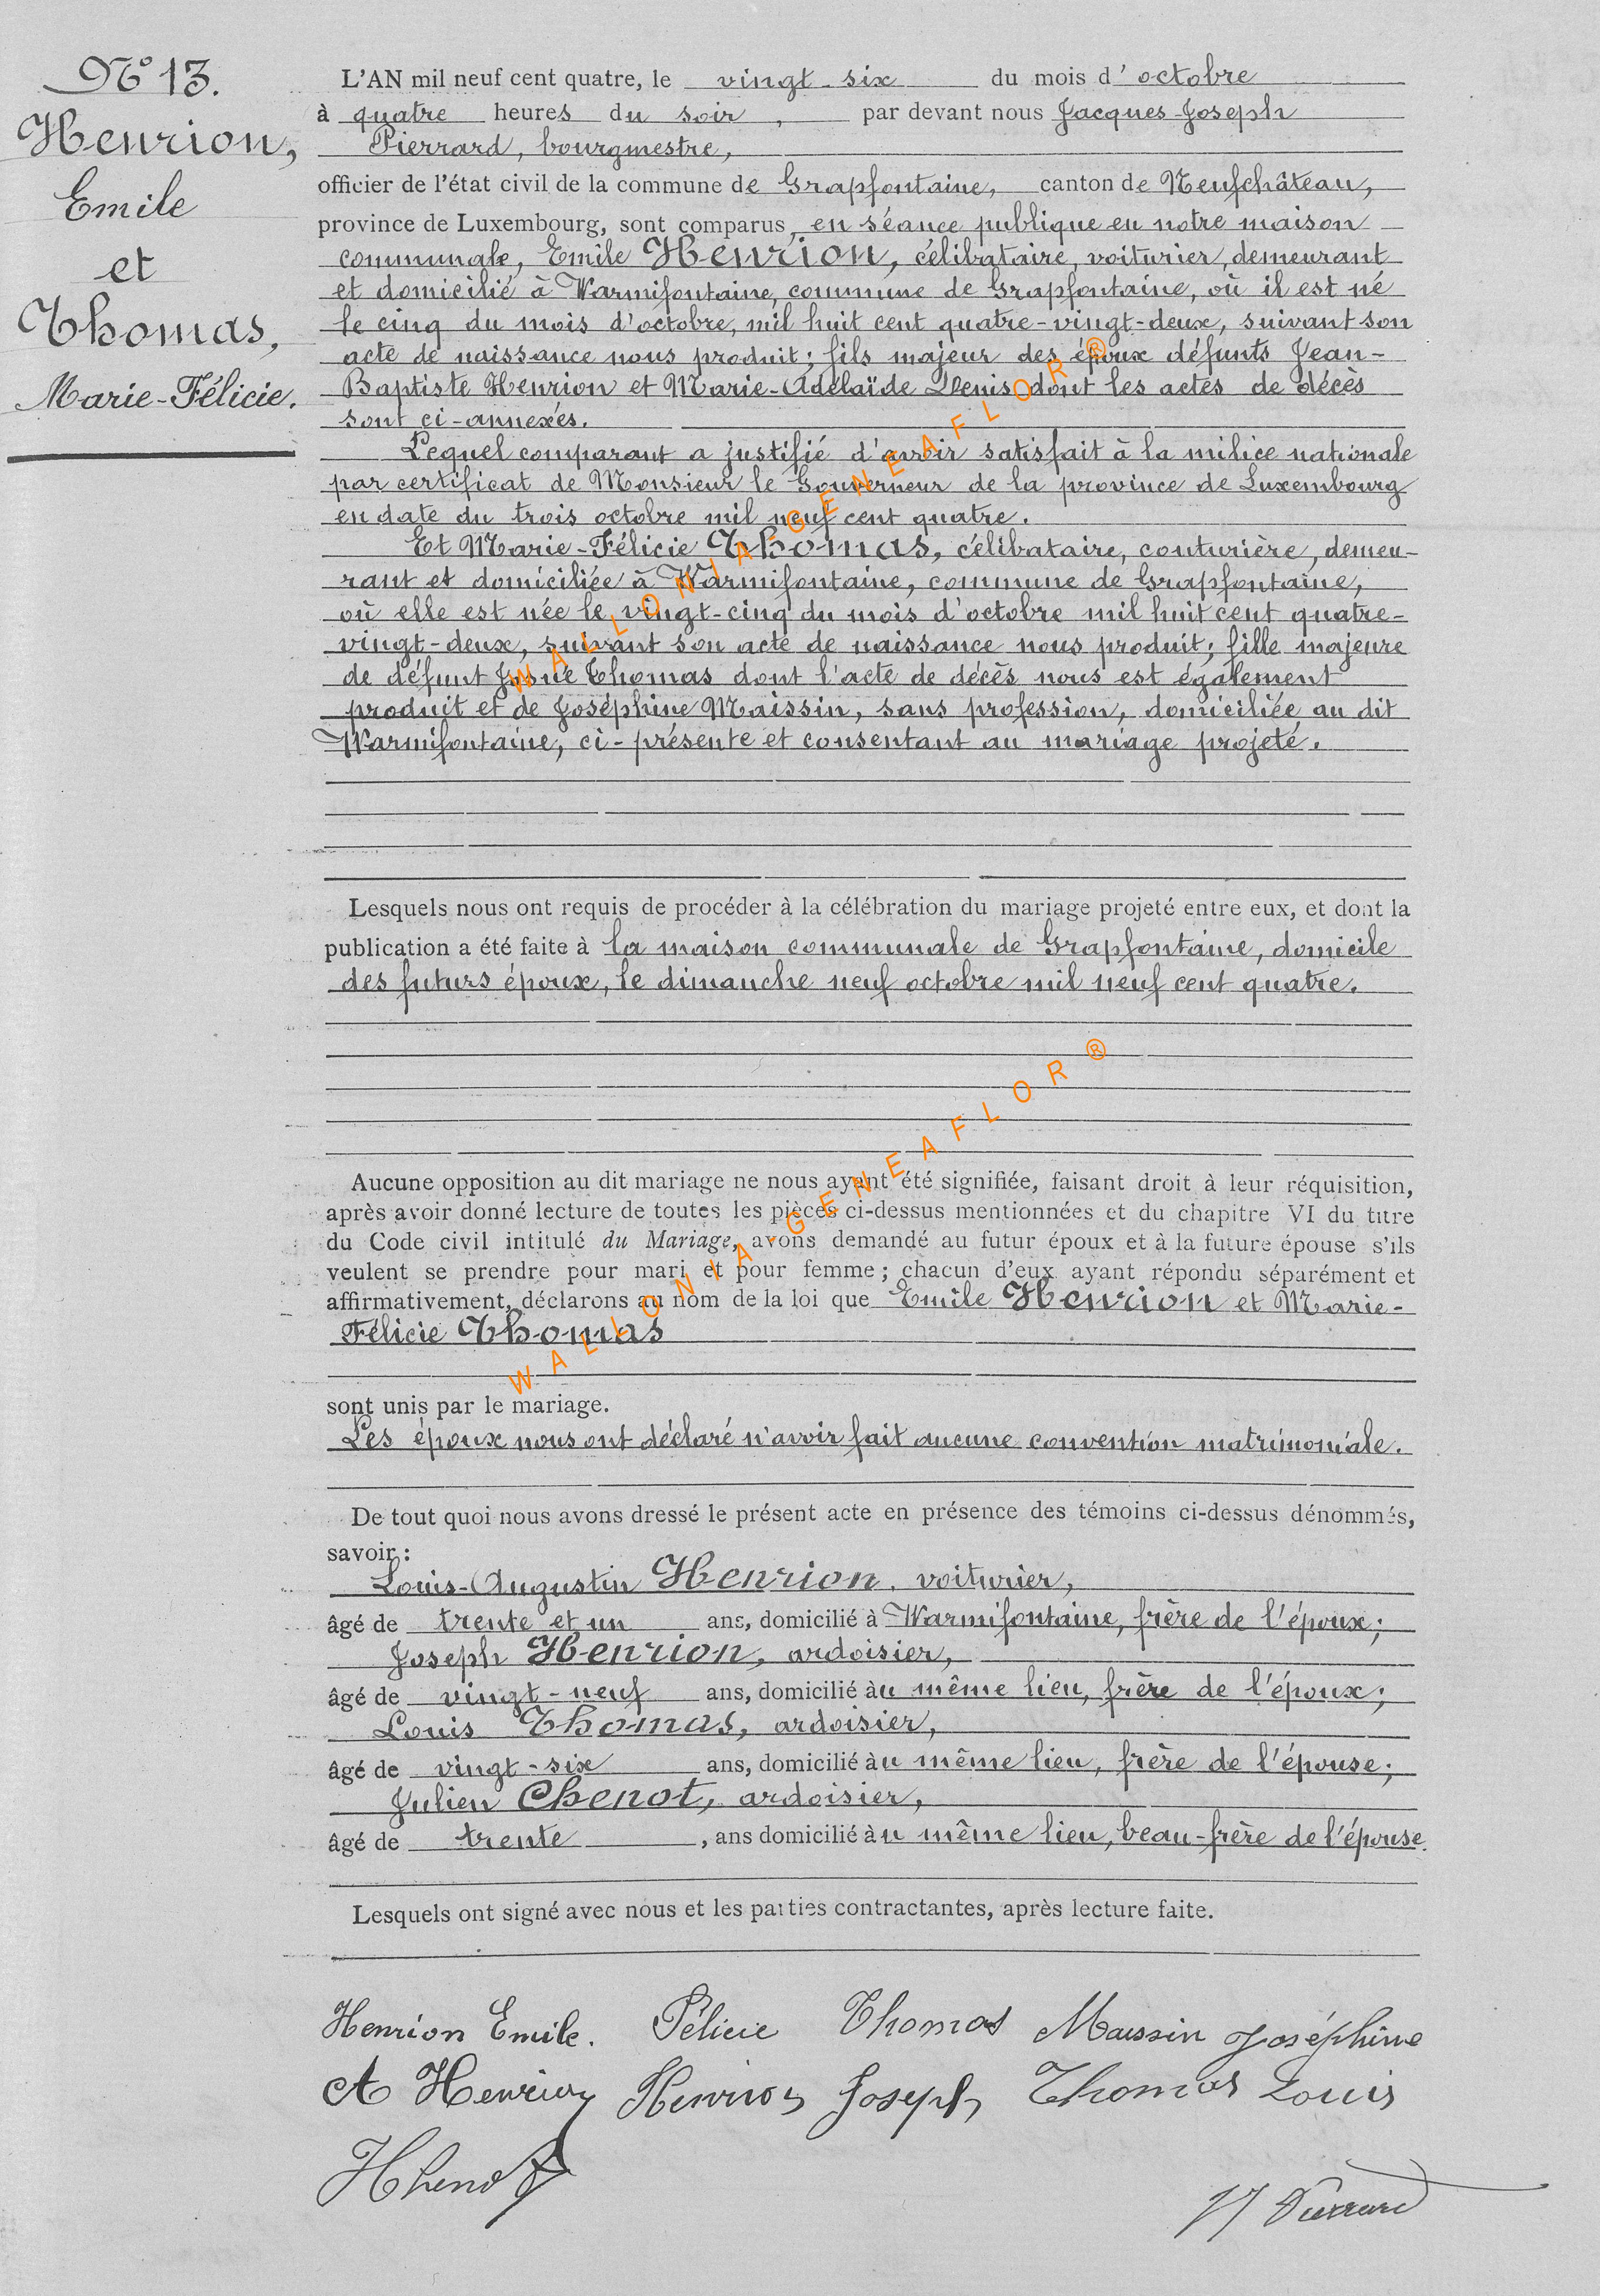 N° 13.
Henrion,
Emile
et
Thomas,
Marie-Félicie.
L'AN mil neuf cent quatre, le vingt-six du mois d'octobre
à quatre heures du soir, par devant nous Jacques-Joseph
Pierrard, bourgmestre,
officier de l'état civil de la commune de Grapfontaine, canton de Neufchâteau,
province de Luxembourg, sont comparus, en séance publique en notre maison
communale, Emile Henrion, célibataire, voiturier, demeurant
et domicilié à Warmifontaine, commune de Grapfontaine, où il est né
le cinq du mois d'octobre, mil huit cent quatre-vingt-deux, suivant son
acte de naissance nous produit; fils majeur des époux défunts Jean-
Baptiste Henrion et Marie-Adélaïde Denis dont les actes de décès
sont ci-annexés.
Lequel comparant a justifié d'avoir satisfait à la milice nationale
par certificat de Monsieur le Gouverneur de la province de Luxembourg
en date du trois octobre mil neuf cent quatre.
Et Marie-Félicie Thomas, célibataire, couturière, demeu-
rant et domiciliée à Warmifontaine, commune de Grapfontaine,
où elle est née le vingt-cinq du mois d'octobre mil huit cent quatre-
vingt-deux, suivant son acte de naissance nous produit; fille majeure
de défunt Josué Thomas dont l'acte de décès nous est également
produit et de Joséphine Maissin, sans profession, domiciliée au dit
Warmifontaine, ci-présente et consentant au mariage projeté.
Lesquels nous ont requis de procéder à la célébration du mariage projeté entre eux, et dont la
publication a été faite à la maison communale de Grapfontaine, domicile
des futurs époux, le dimanche neuf octobre mil neuf cent quatre.
Aucune opposition au dit mariage ne nous ayant été signifiée, faisant droit à leur réquisition,
après avoir donné lecture de toutes les pièces ci-dessus mentionnées et du chapitre VI du titre
du Code civil intitulé du Mariage, avons demandé au futur époux et à la future épouse s'ils
veulent se prendre pour mari et pour femme; chacun d'eux ayant répondu séparément et
affirmativement, déclarons au nom de la loi que Emile Henrion et Marie-
Félicie Thomas
sont unis par le mariage.
Les époux nous ont déclaré n'avoir fait aucune convention matrimoniale.
De tout quoi nous avons dressé le présent acte en présence des témoins ci-dessus dénommés,
savoir:
Louis-Augustin Henrion, voiturier,
âgé de trente et un ans, domicilié à Warmifontaine, frère de l'époux;
Joseph Henrion, ardoisier,
âgé de vingt-neuf ans, domicilié au même lieu, frère de l'époux;
Louis Thomas, ardoisier,
âgé de vingt-six ans, domicilié au même lieu, frère de l'épouse;
Julien Chenot, ardoisier,
âgé de trente, ans domicilié au même lieu, beau-frère de l'épouse.
Lesquels ont signé avec nous et les parties contractantes, après lecture faite.
Henrion Emile. Félicie Thomas Maissin Joséphine
A Henrion Henrion Joseph Thomas Louis
JChenot
JJ Pierrard
WALLONIA-GENEAFLOR®
WALLONIA-GENEAFLOR®